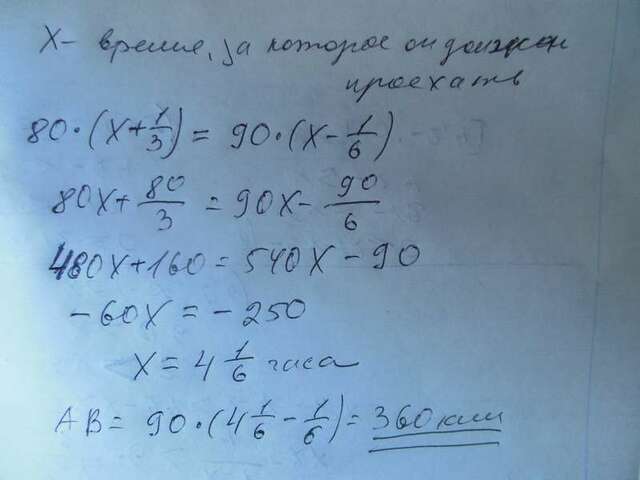 X - время, за которое он должен
проехать
80·(X+1/3) = 90·(X-1/6)
80X+80/3 = 90X-90/6
480X+160=540X-90
-60X=-250
X=4 1/6 часа
AB= 90·(4 1/6-1/6)=360км